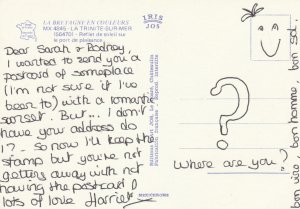 LA BRETAGNE EN COULEURS
MX 4245 - LA TRINITE-SUR-MER
(56470) - Reflet de soleil sur
le port de plaisance.
IRIS
JOS
Dear Sarah & Rodney,
I wanted to send you a
postcard of someplace
(I'm not sure if I've
been to) with a romantic
sunset. But... I don't
have your address do
I? - So now I'll keep the
stamp but you're not
getting away with not
having the postcard!
lots of love Harriet
?
Where are you?
bon vive, bon homme, bon sol
MEXICHROME